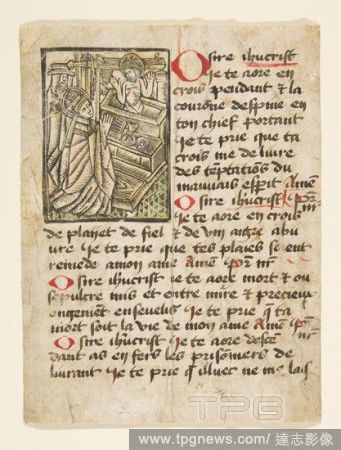 O sire ihucrist
Je te aore en
crois pendant & la
couronne despine en
ton chief portant
Je te prie que ta
crois me delivre
des teptations du
mauuais esperit Amen
O sire ihucrist
Je te aore en crois
de plaiet de fiel & de vin aigre abu
ure Je te prie que tes plaies soient
remede a mon ame Amen Pr nr
O sire ihucrist Je te aore mort & ou
sepulcre mis et entre mire & precieux
ongement enseuelis Je te prie q ta
mort soit la vie de mon ame Amen Pr nr
O sire ihucrist Je te aore descen
dant as enfers les prisoniers de
liurant Je te prie q illuec ne me lais
TPG
www.tpgnews.com/ 達志影像